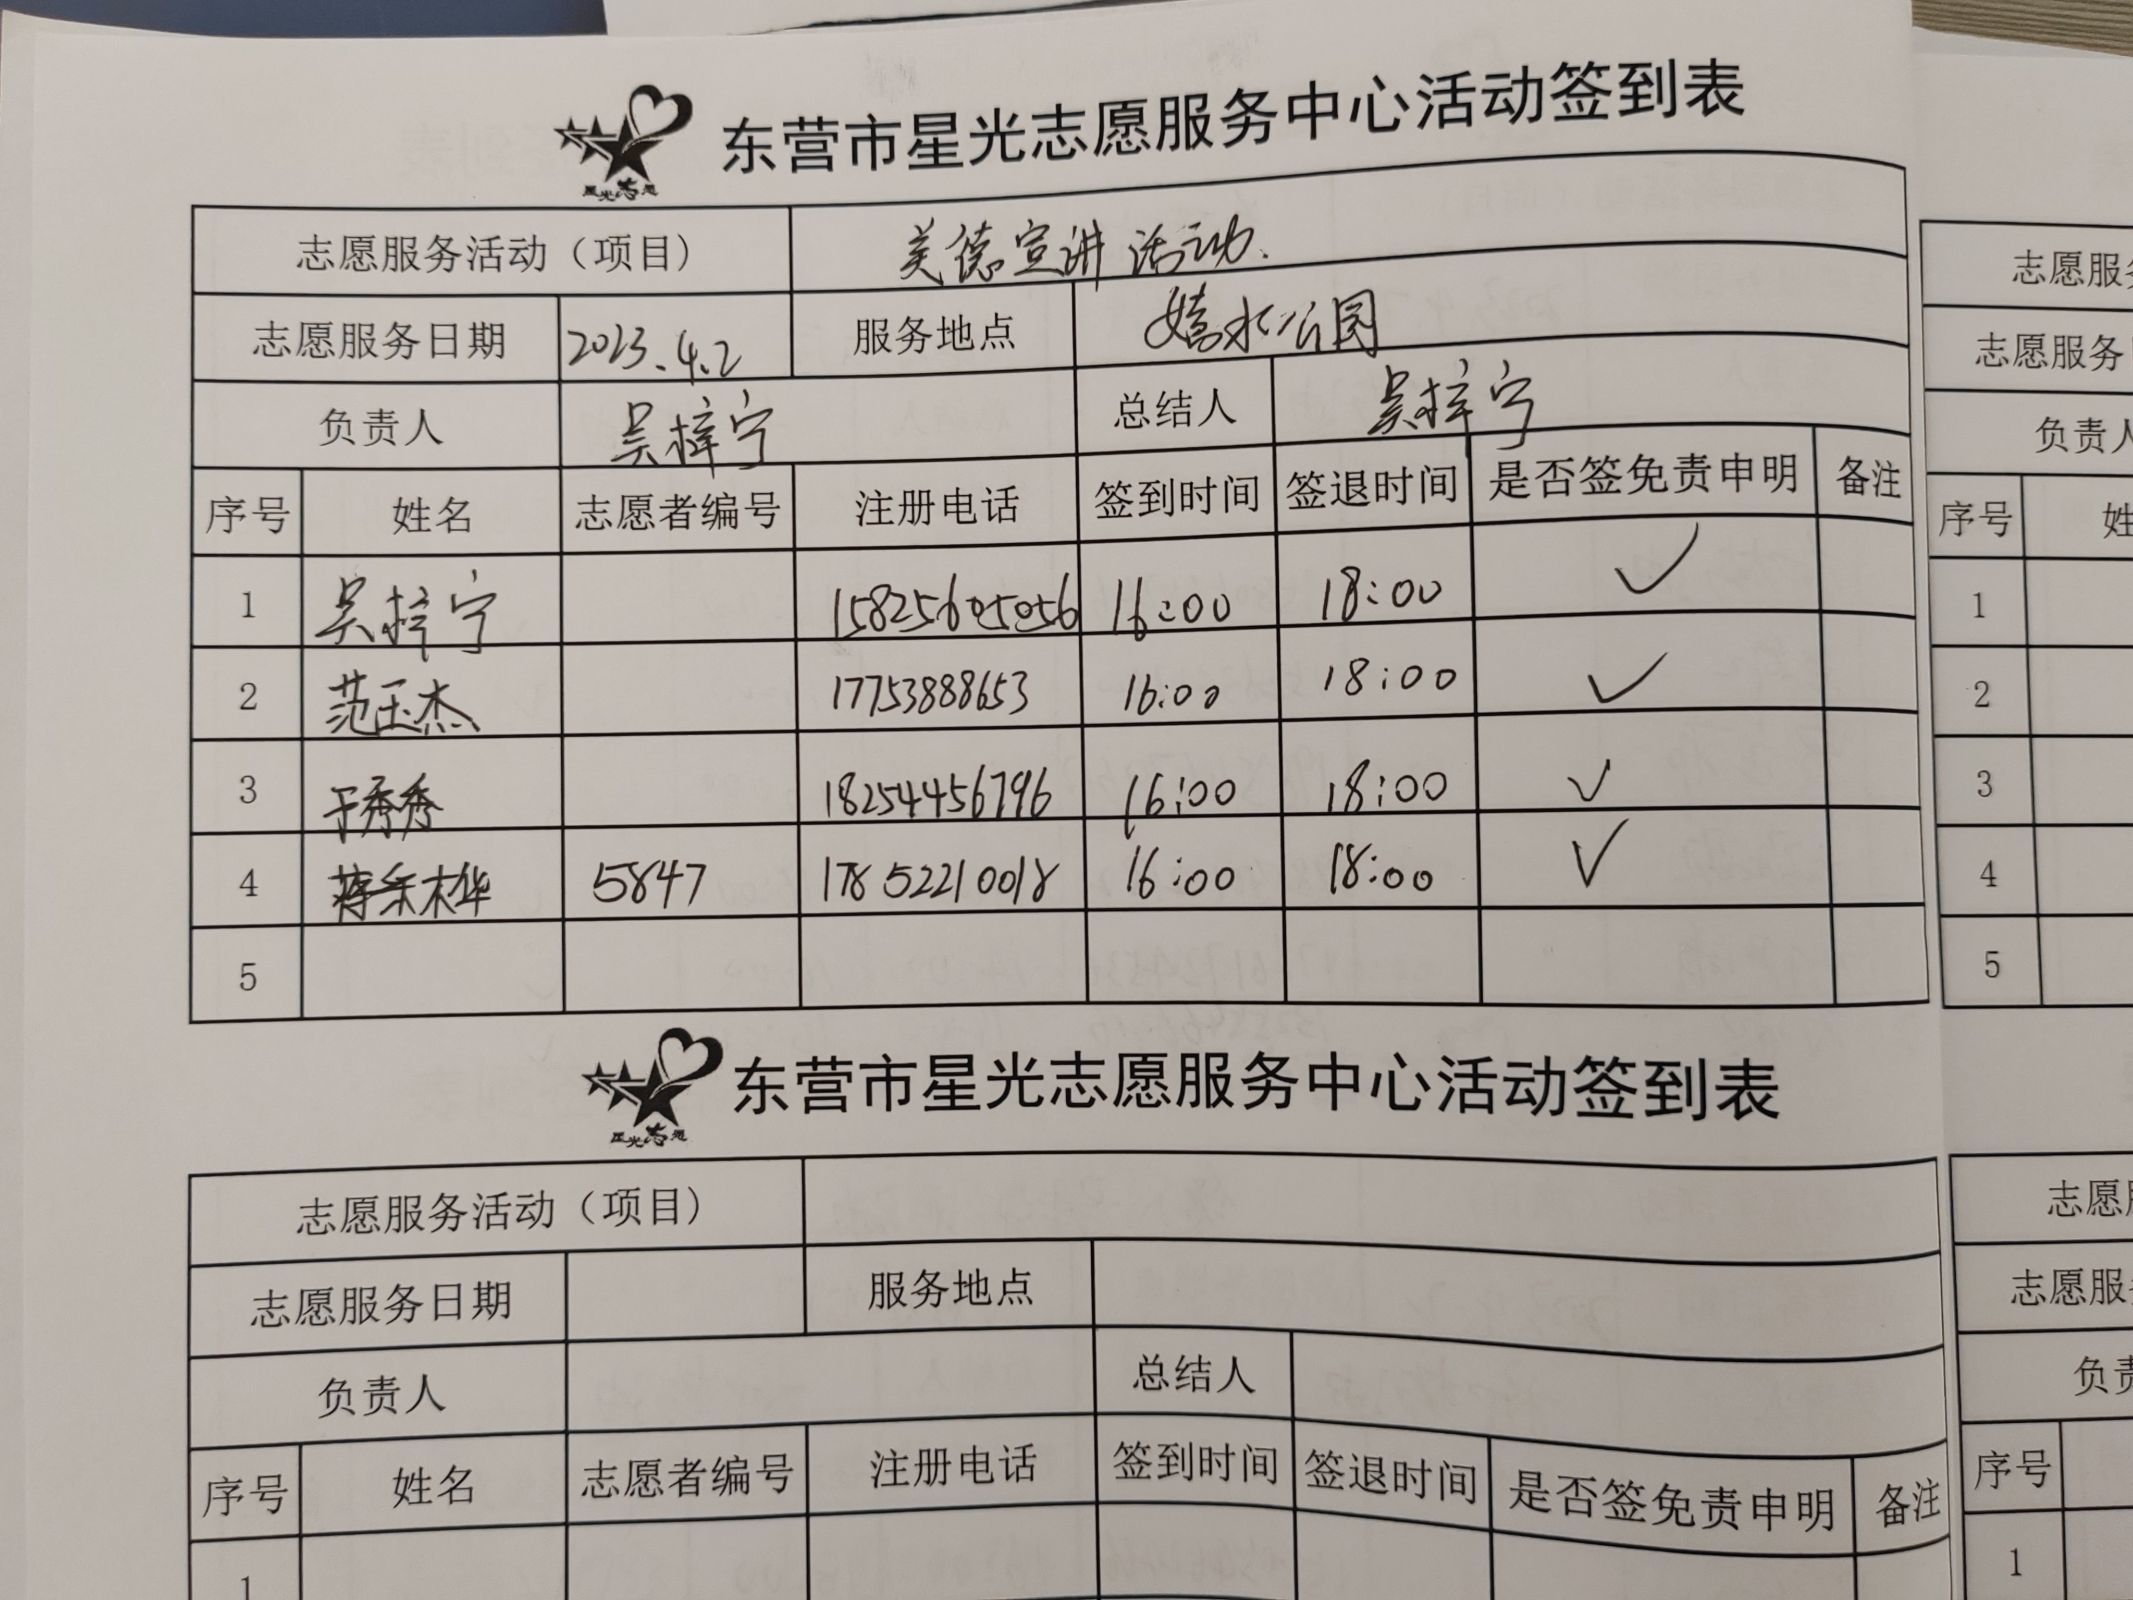 东营市星光志愿服务中心活动签到表
星光志愿
志愿服务活动（项目） 美德宣讲活动.
志愿服务日期 2023.4.2 服务地点 嬉水公园
负责人 吴梓宁 总结人 吴梓宁
序号 姓名 志愿者编号 注册电话 签到时间 签退时间 是否签免责申明 备注
1 吴梓宁 15825605056 16:00 18:00 ✓
2 范玉杰 17753888653 16:00 18:00 ✓
3 于秀秀 18254456796 16:00 18:00 ✓
4 5847 17852210018 16:00 18:00 ✓
5
东营市星光志愿服务中心活动签到表
星光志愿
志愿服务活动（项目）
志愿服务日期 服务地点
负责人 总结人
序号 姓名 志愿者编号 注册电话 签到时间 签退时间 是否签免责申明 备注
1
志愿服
志愿服务
负责人
序号 姓
1
2
3
4
5
志愿
志愿服
负责
序号
1